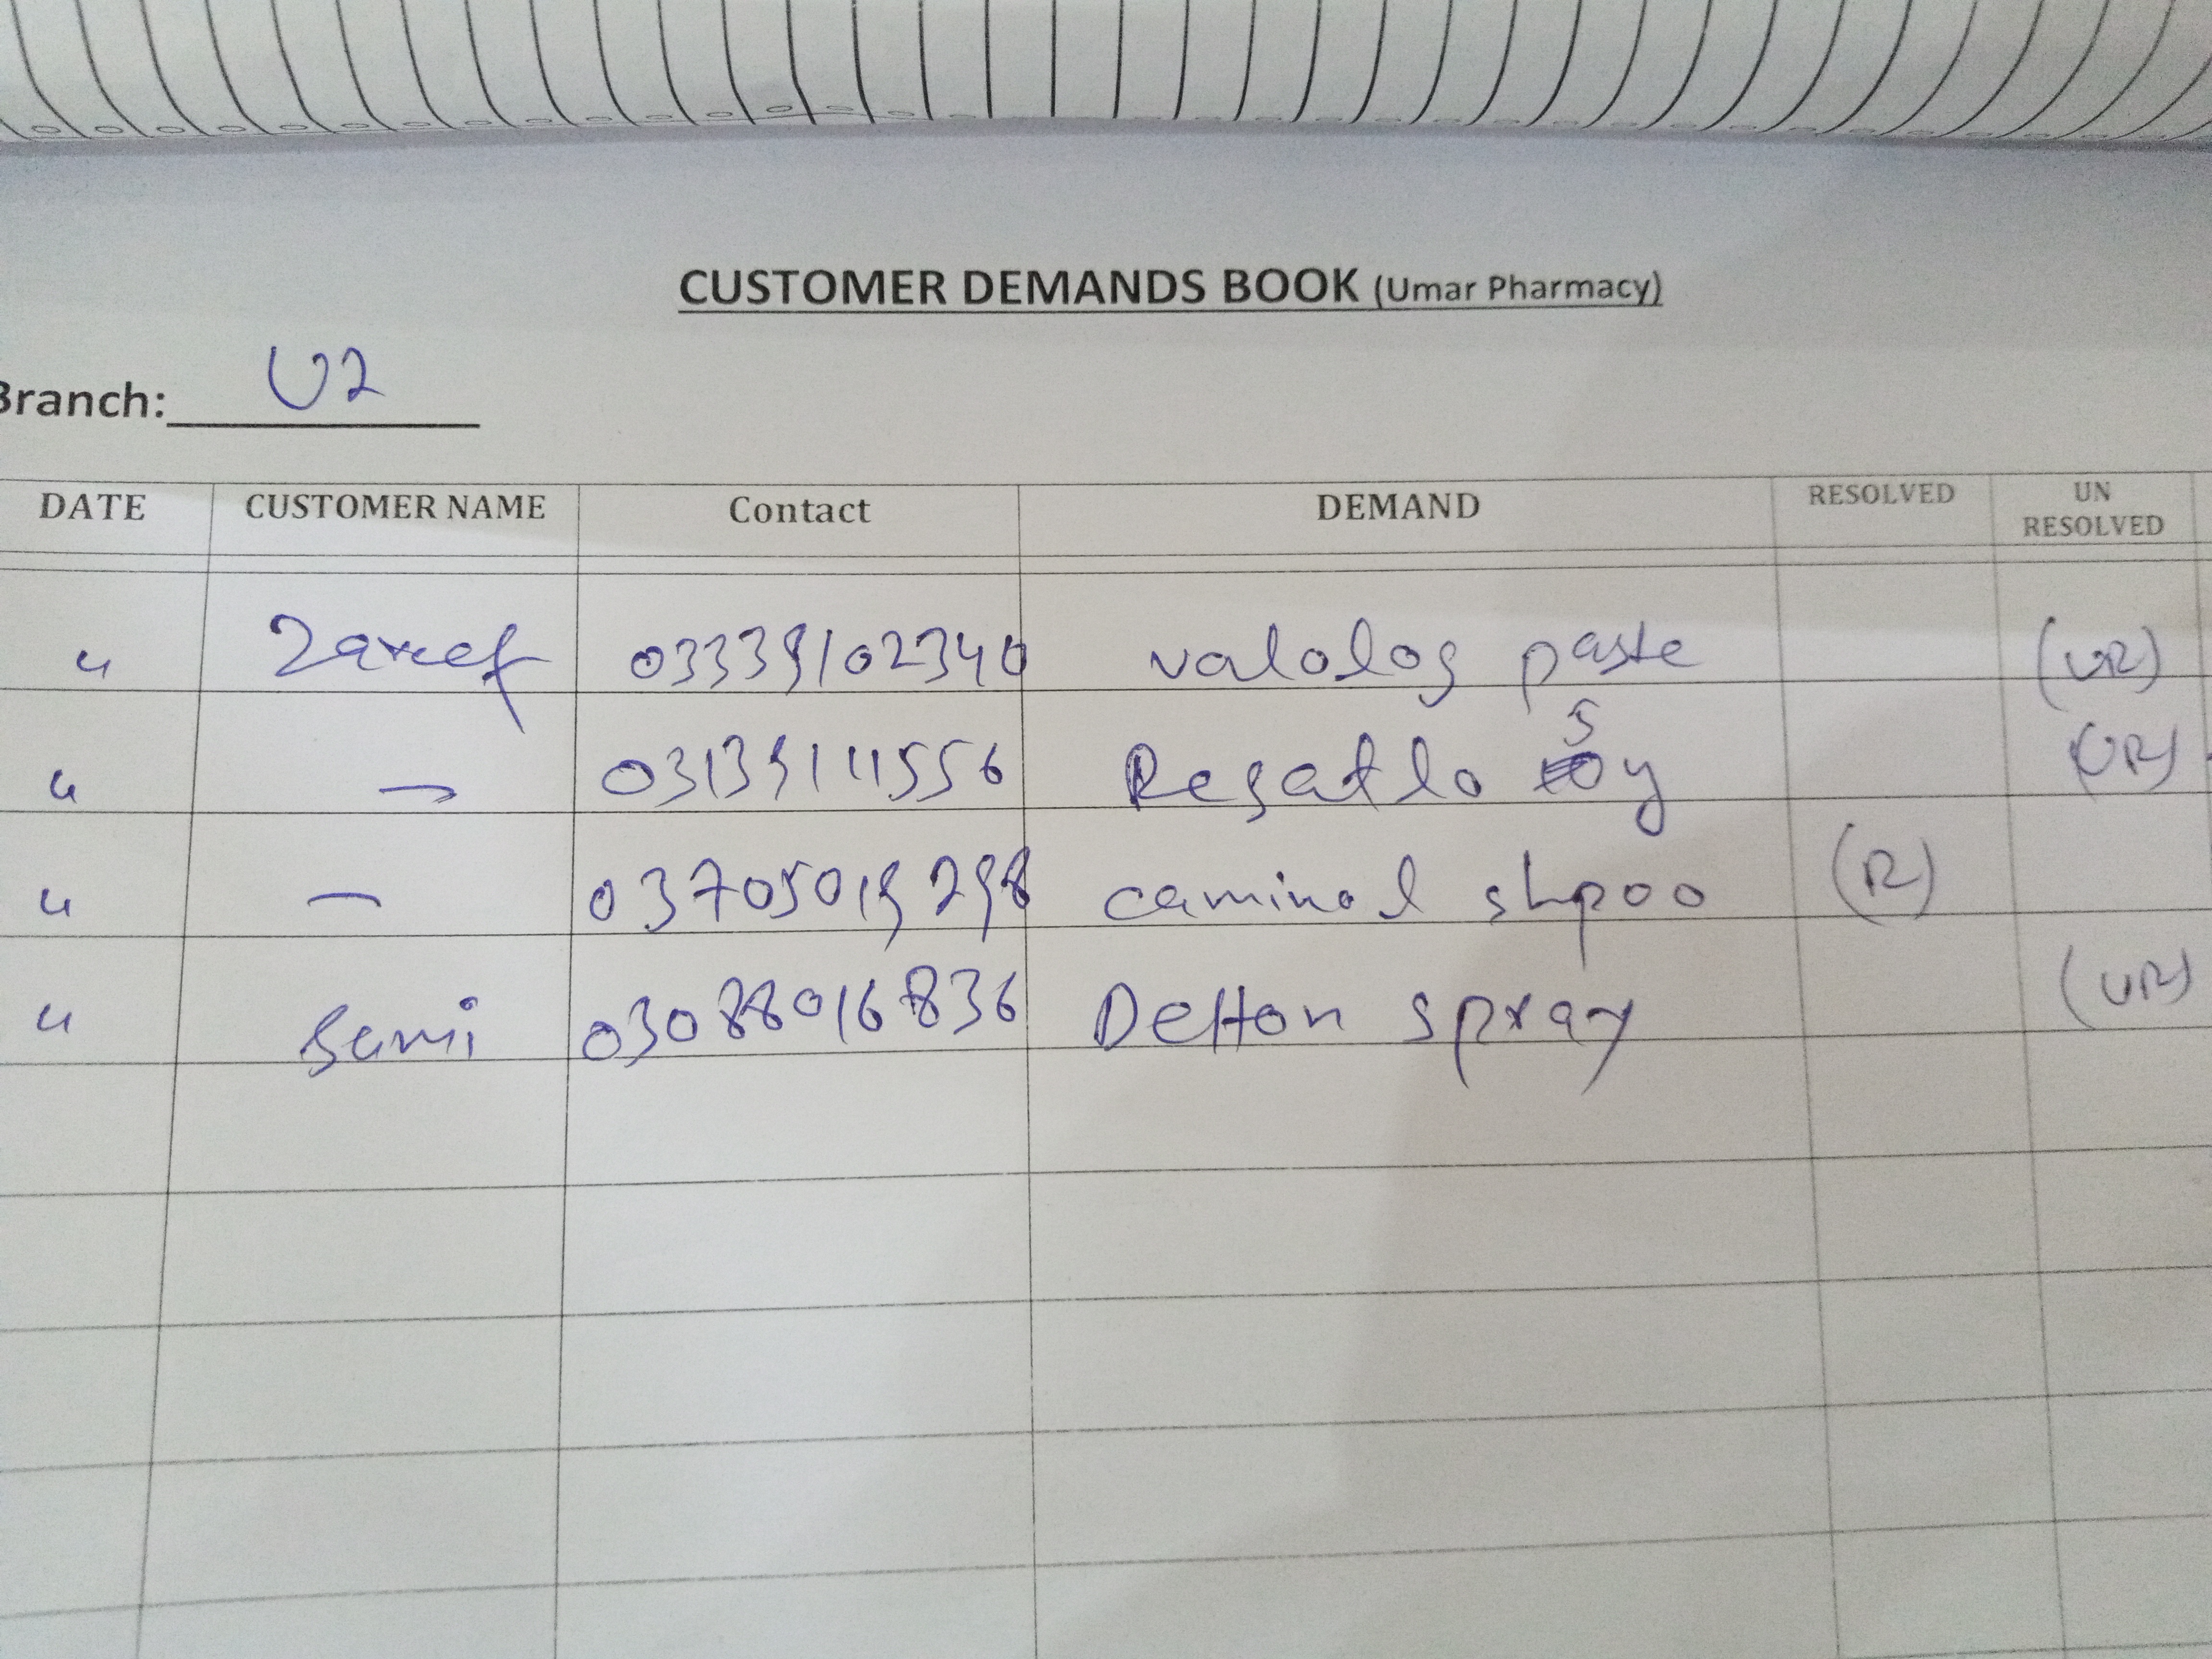 CUSTOMER DEMANDS BOOK (Umar Pharmacy)
Branch: U2
DATE CUSTOMER NAME Contact DEMAND RESOLVED UN RESOLVED
" Zareef 03339102340 valolog paste (UR)
" — 03139111556 Regatlo 5 y (UR)
" — 03705019298 caminol shpoo (R)
" Sami 03088016836 Delton spray (UR)